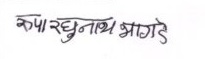 रुपा रघुनाथ भागडे